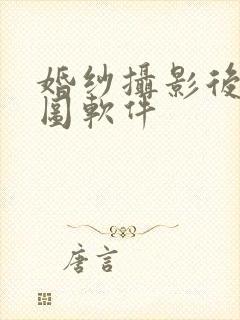 婚纱攝影後
圖軟件
唐言